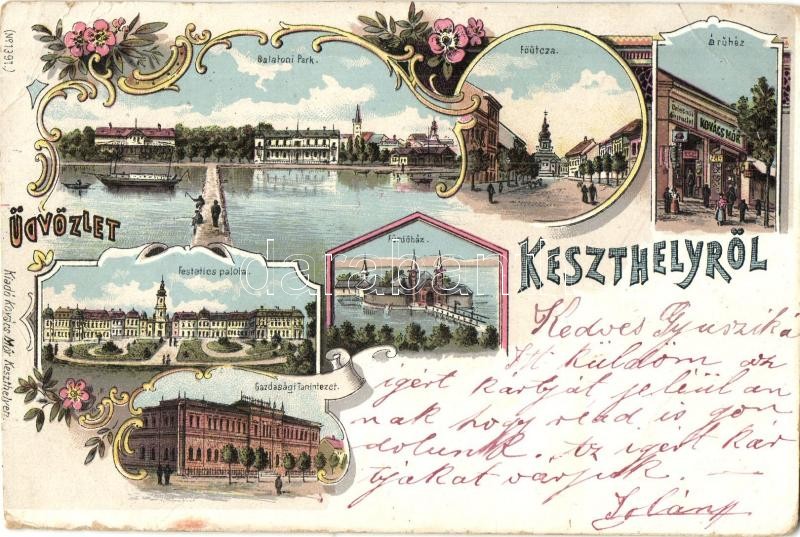 (No 1391.)
Balatoni Park.
Főútcza.
áruház
KOVÁCS MÓR
ÜDVÖZLET
Fürdőház.
KESZTHELYRŐL
Festetics palota.
Gazdasági Tanintézet.
Kiadó Kovács Mór Keszthelyen.
Kedves Gyuszika
Itt küldöm az
igért kártyát jeléül an
nak hogy reád is gon
dolunk. Az igért kár
tyákat várjuk.
Jolán
darabanth